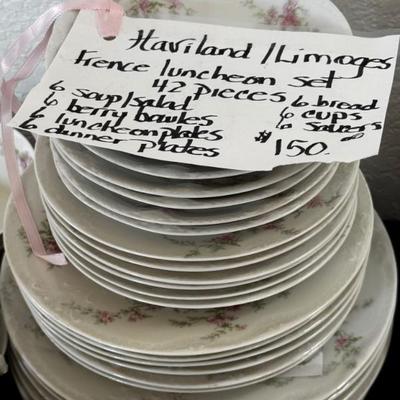 Haviland/Limoges
Frence luncheon set
42 pieces
6 soup/salad 6 bread
6 berry bowles 6 cups
6 luncheon plates 6 saucers
6 dinner plates $150.